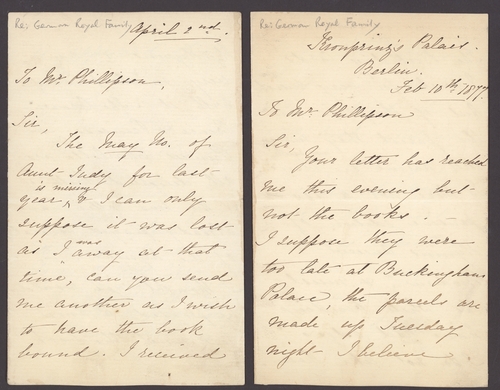 Re: German Royal Family
April 2nd.
To Mr. Phillipson,
Sir,
The May No. of
Aunt Judy for last
year is missing & I can only
suppose it was lost
as I was away at that
time, can you send
me another as I wish
to have the book
bound. I received
Re: German Royal Family
Kronprinz's Palais.
Berlin.
Feb 10th 1877.
To Mr. Phillipson
Sir,
Your letter has reached
me this evening but
not the books. —
I suppose they were
too late at Buckingham
Palace, the parcels are
made up Tuesday
night I believe.